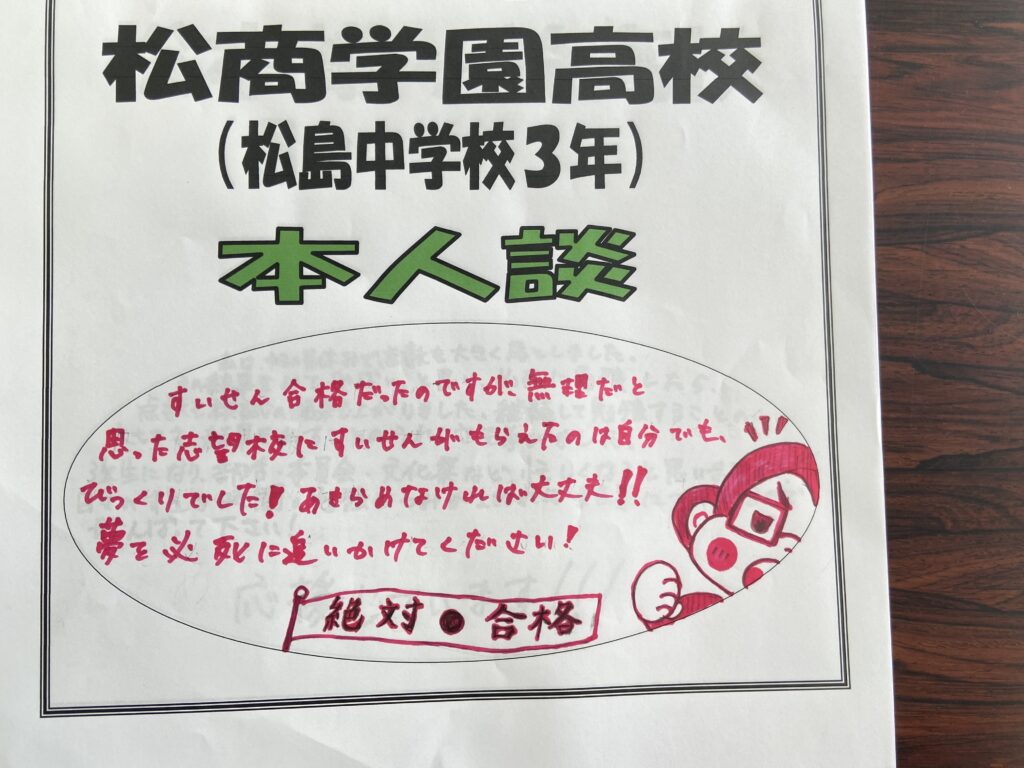 松商学園高校
(松島中学校3年)
本人談
すいせん合格だったのですが無理だと
思った志望校にすいせんがもらえたのは自分でも、
びっくりでした!あきらめなければ大丈夫!!
夢を必死に追いかけてください!
絶対●合格